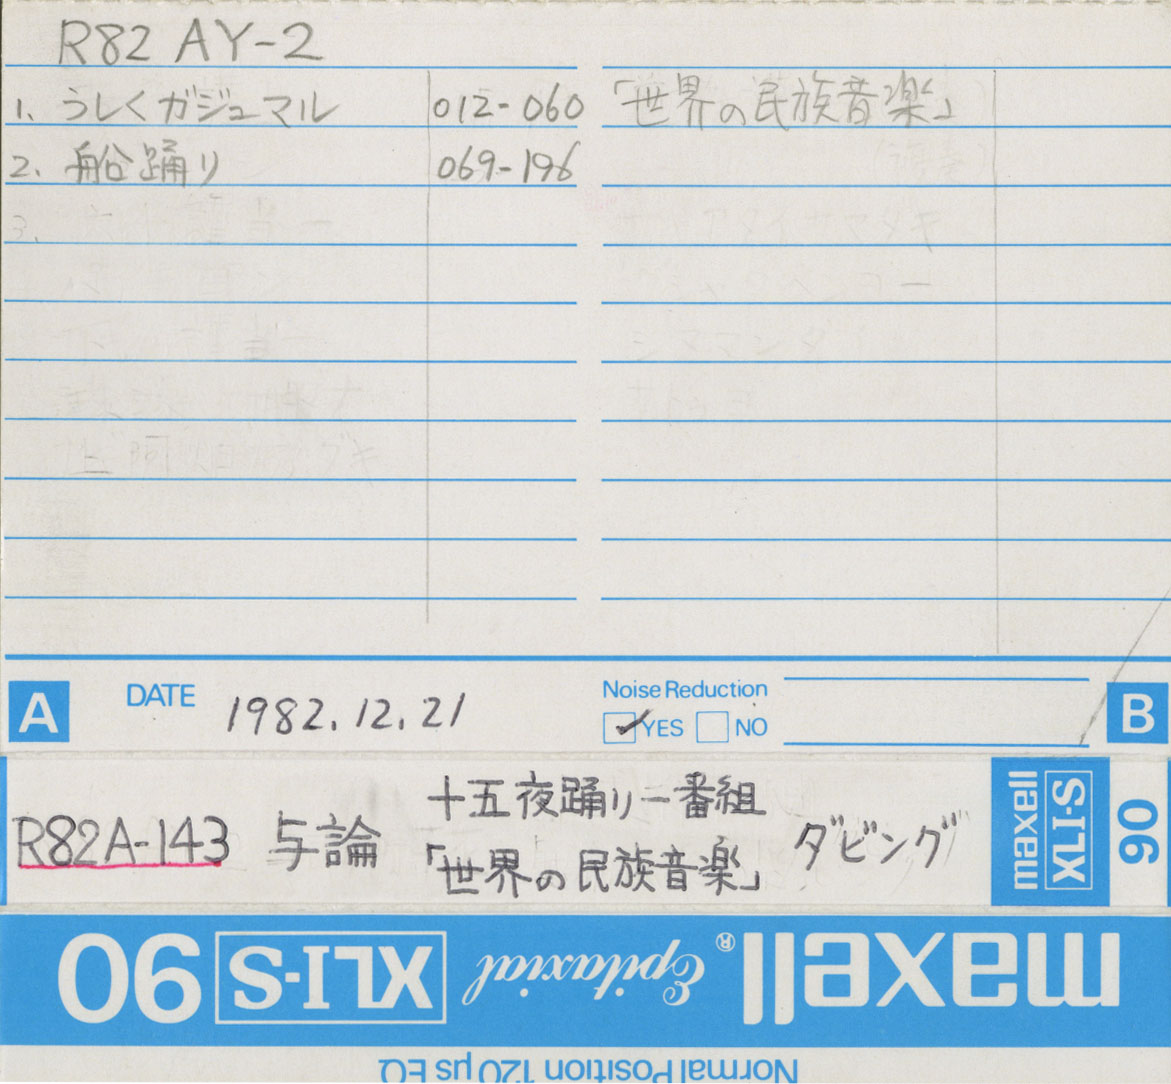 R82 AY-2
1. うしくガジュマル 012-060
2. 船踊り 069-196
3.
「世界の民族音楽」
A
DATE 1982.12.21
Noise Reduction
YES NO
B
R82A-143 与論 十五夜踊り一番組
「世界の民族音楽」 ダビング
maxell
XLI-S
90
maxell® Epitaxial XLI-S 90
Normal Position 120 μs EQ